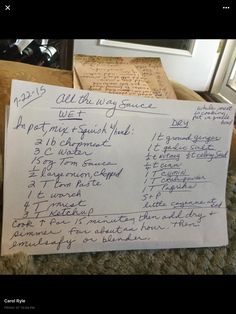 7-22-15
All the Way Sauce
WET
In pot mix & squish w/hand:
2 lb chopmeat
3 C Water
15 oz Tom Sauce
1/2 large onion, chopped
2 T Tom Paste
1 t worch
4 T must
3 T Ketchup
DRY
while meat
is combining
put in smaller
bowl
1 t ground ginger
1 t garlic salt
1/2 t celery salt
1 T cumin
1 T chili powder
1 T Paprika
S + P
little cayenne
Cook ↑ for 15 minutes then add dry &
simmer for about an hour. Then
emulsify or blender.
Carol Ryle